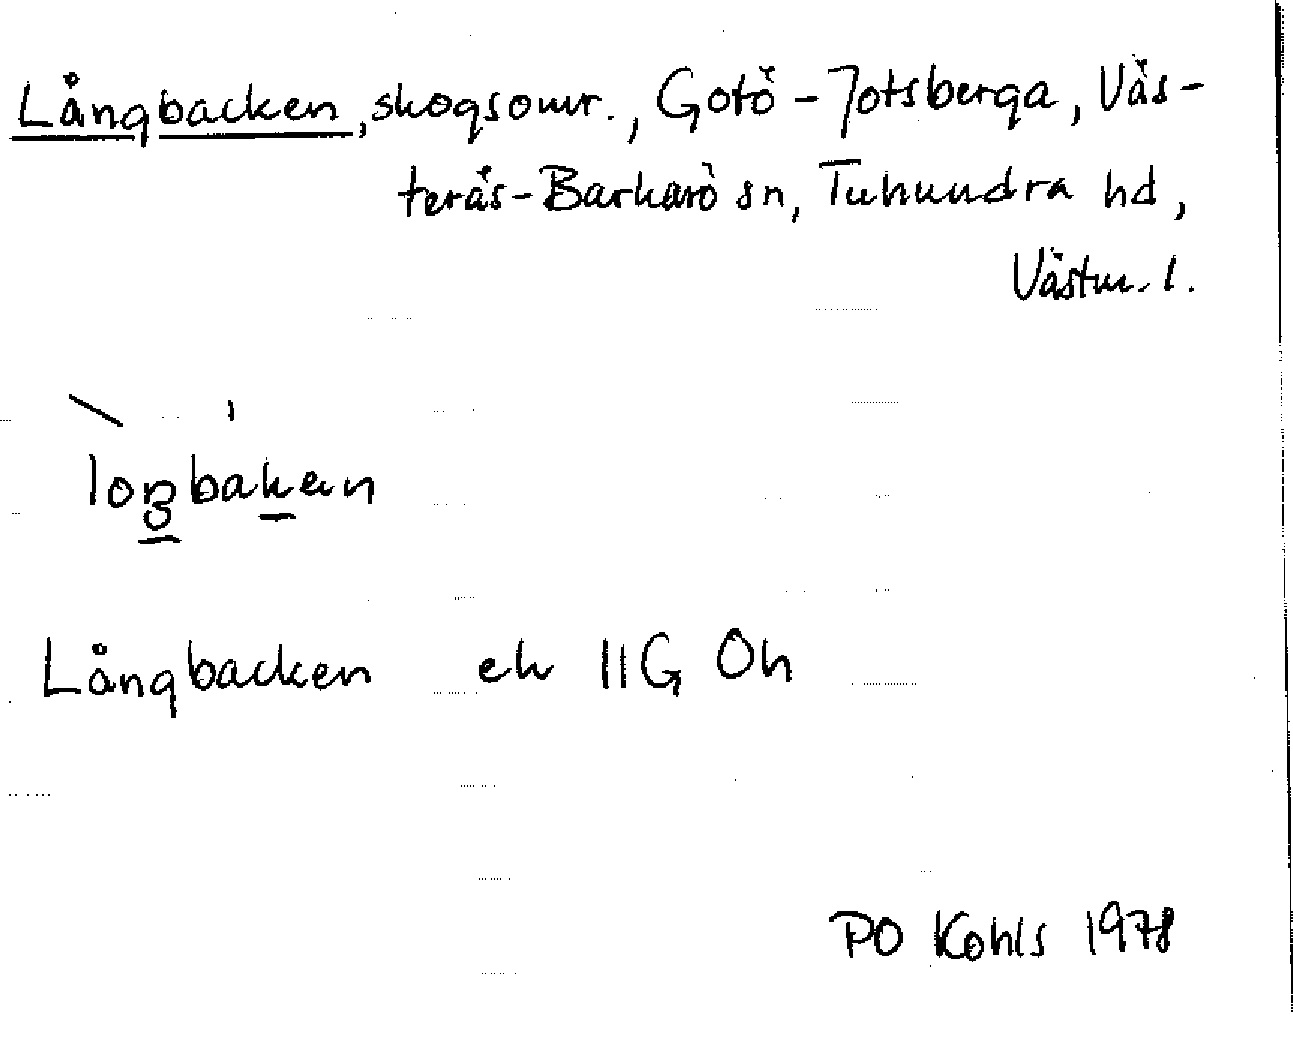 Långbacken, skogsomr., Gotö - Jotsberga, Väs-
terås-Barkarö sn, Tuhundra hd,
Västm. l.
Långbacken ek 11G 0h
PO Kohls 1978